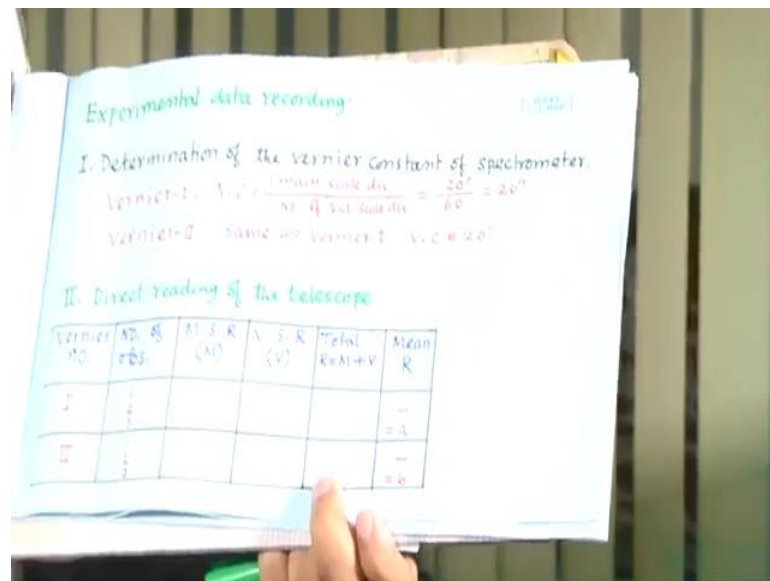 Experimental data recording
I. Determination of the vernier constant of spectrometer.
Vernier-I. V.C = 1 main scale div / no. of ver scale div = 20' / 60 = 20"
Vernier-II same as vernier I V.C = 20"
II. Direct reading of the telescope
Vernier no. No. of obs. M.S.R (M) V.S.R (V) Total R=M+V Mean R
I 1 2 3 — = a
II 1 2 3 — = b